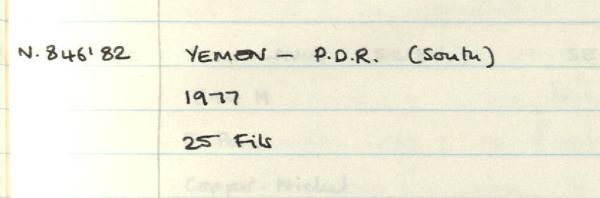 N.846'82 YEMEN - P.D.R. (South)
1977
25 Fils
Copper-Nickel